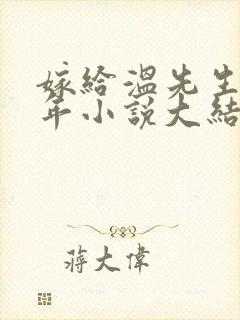 嫁給溫先生
年小說大結
蔣大偉